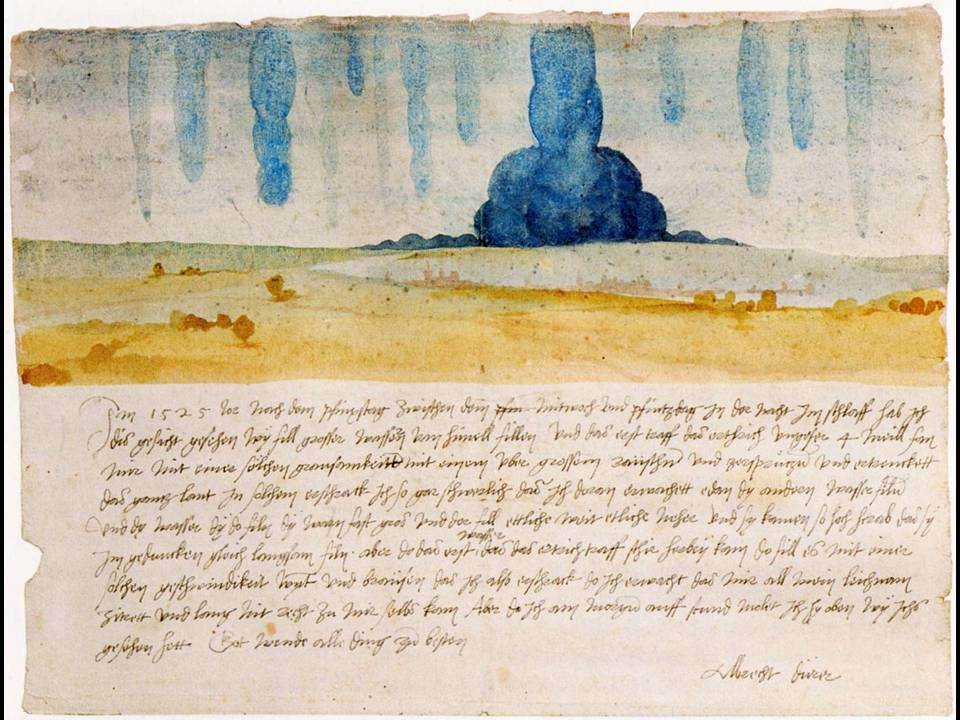 Im 1525 Jor nach dem pfinxstag zwischen dem mitwoch und pfintzdag in der nacht im schlaff hab ich
dis gesicht gesehen wy fill grosser wassern vom himell fillen Und das erst traff das erthrich ungefer 4 meill fan
mir mit einer sölchen grausamkeitt mit einem uber grossem raüschn und zersprützn und ertrenckett
das gantz lant In sölchem erschrack ich so gar schwerlich das ich doran erwachett edan dy andern wasser filn
Und dy wasser dy do filn dy warn fast gros und der fill ettliche weit etliche neher und sy kamen so hoch herab das sy
im gedancken gleich langsam filn aber do das erst wasser das das ertrich traff schir herbey kam do fill es mit einer
sölchen geschwindikeit wynt und braüsen das ich also erschrack do ich erwacht das mir all mein leichnam
zitrett und lang nit recht zu mir selbs kam Aber do ich am morgn auff stund molet ich hy oben wy ichs
gesehen hett Got wende alle ding zu besten
Albrecht dürer